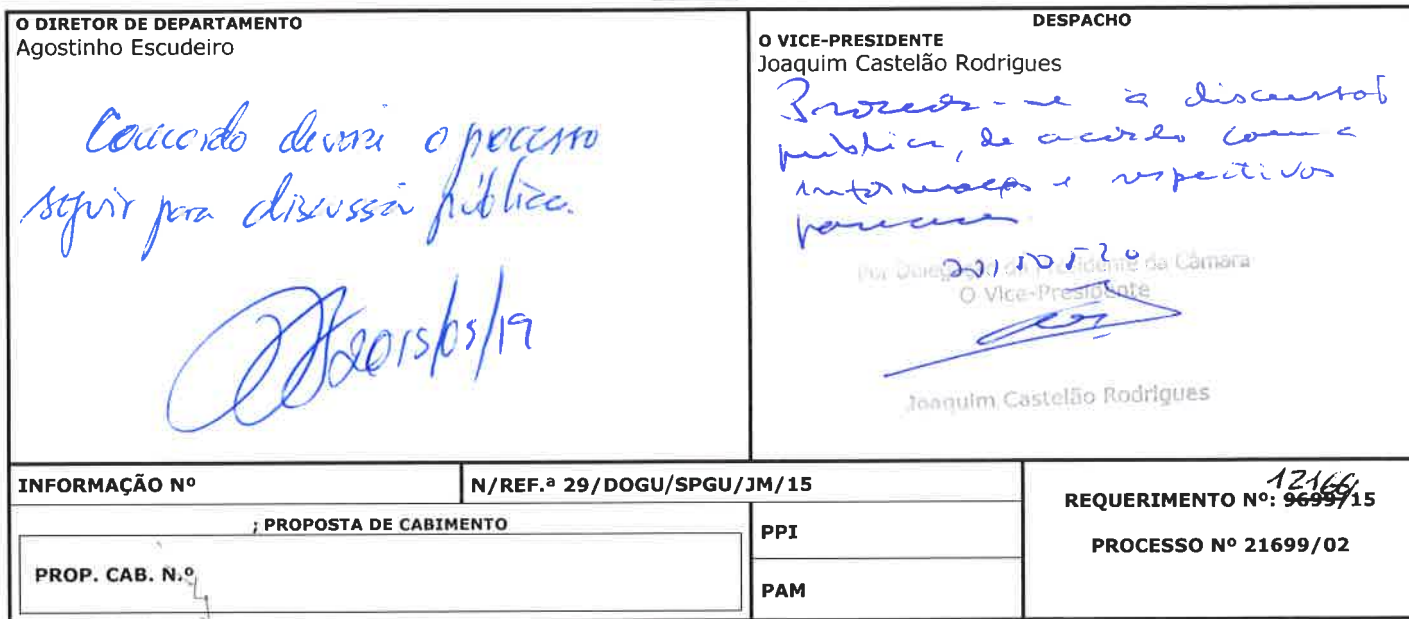 O DIRETOR DE DEPARTAMENTO
Agostinho Escudeiro
Concordo deverá o processo
seguir para discussão pública.
2015/05/19
DESPACHO
O VICE-PRESIDENTE
Joaquim Castelão Rodrigues
Proceda-se à discussão
pública, de acordo com a
informação e respectivos
pareceres
20150520
Por Delegação do Presidente da Câmara
O Vice-Presidente
Joaquim Castelão Rodrigues
INFORMAÇÃO Nº
N/REF.ª 29/DOGU/SPGU/JM/15
12166
REQUERIMENTO Nº: 9699/15
PROCESSO Nº 21699/02
; PROPOSTA DE CABIMENTO
PROP. CAB. N.º
PPI
PAM